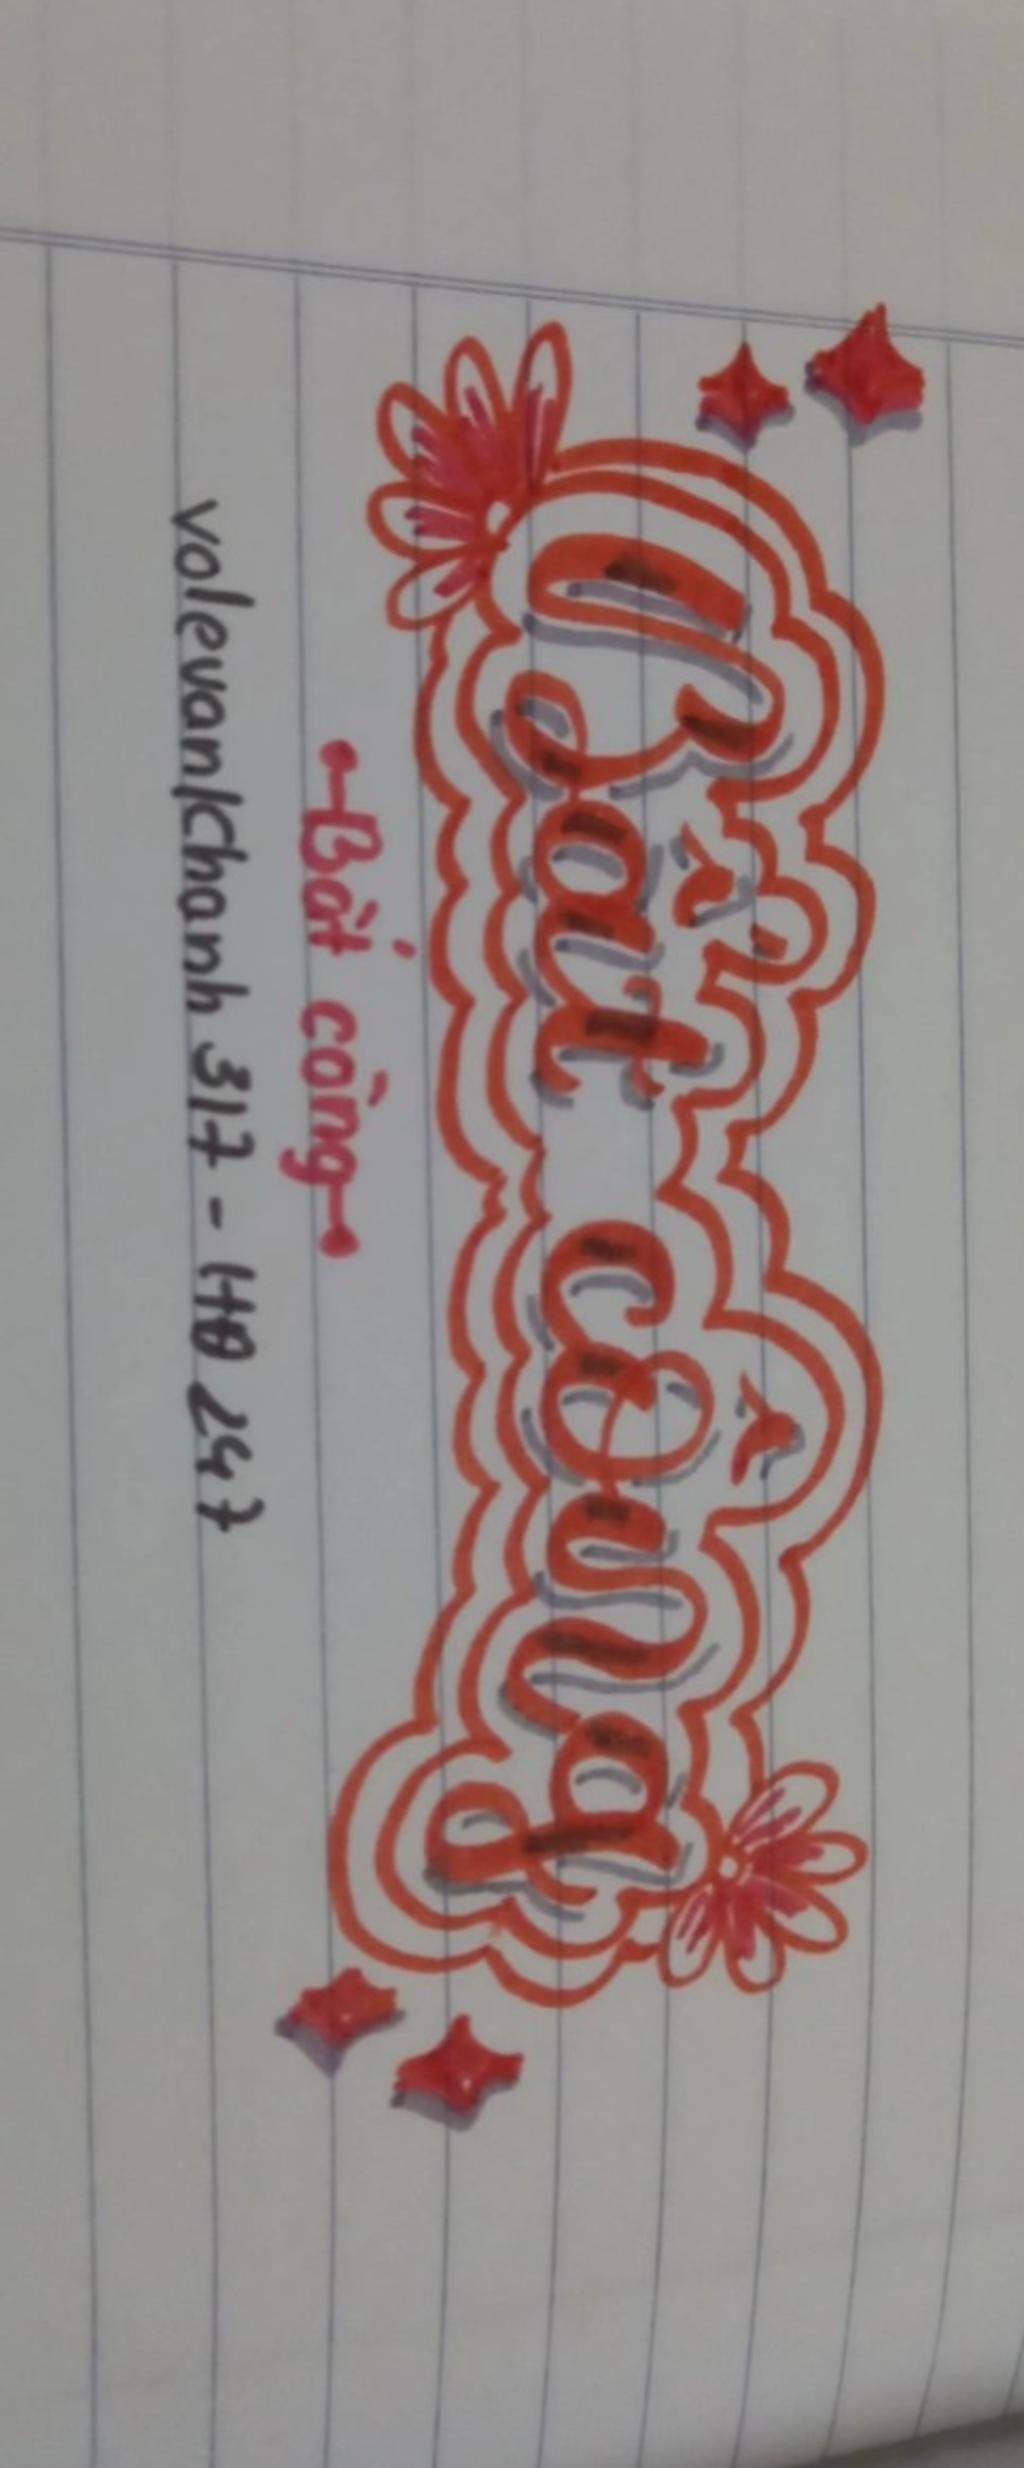 Bất công
Bất công
volevankhanh 317 - HĐ 247